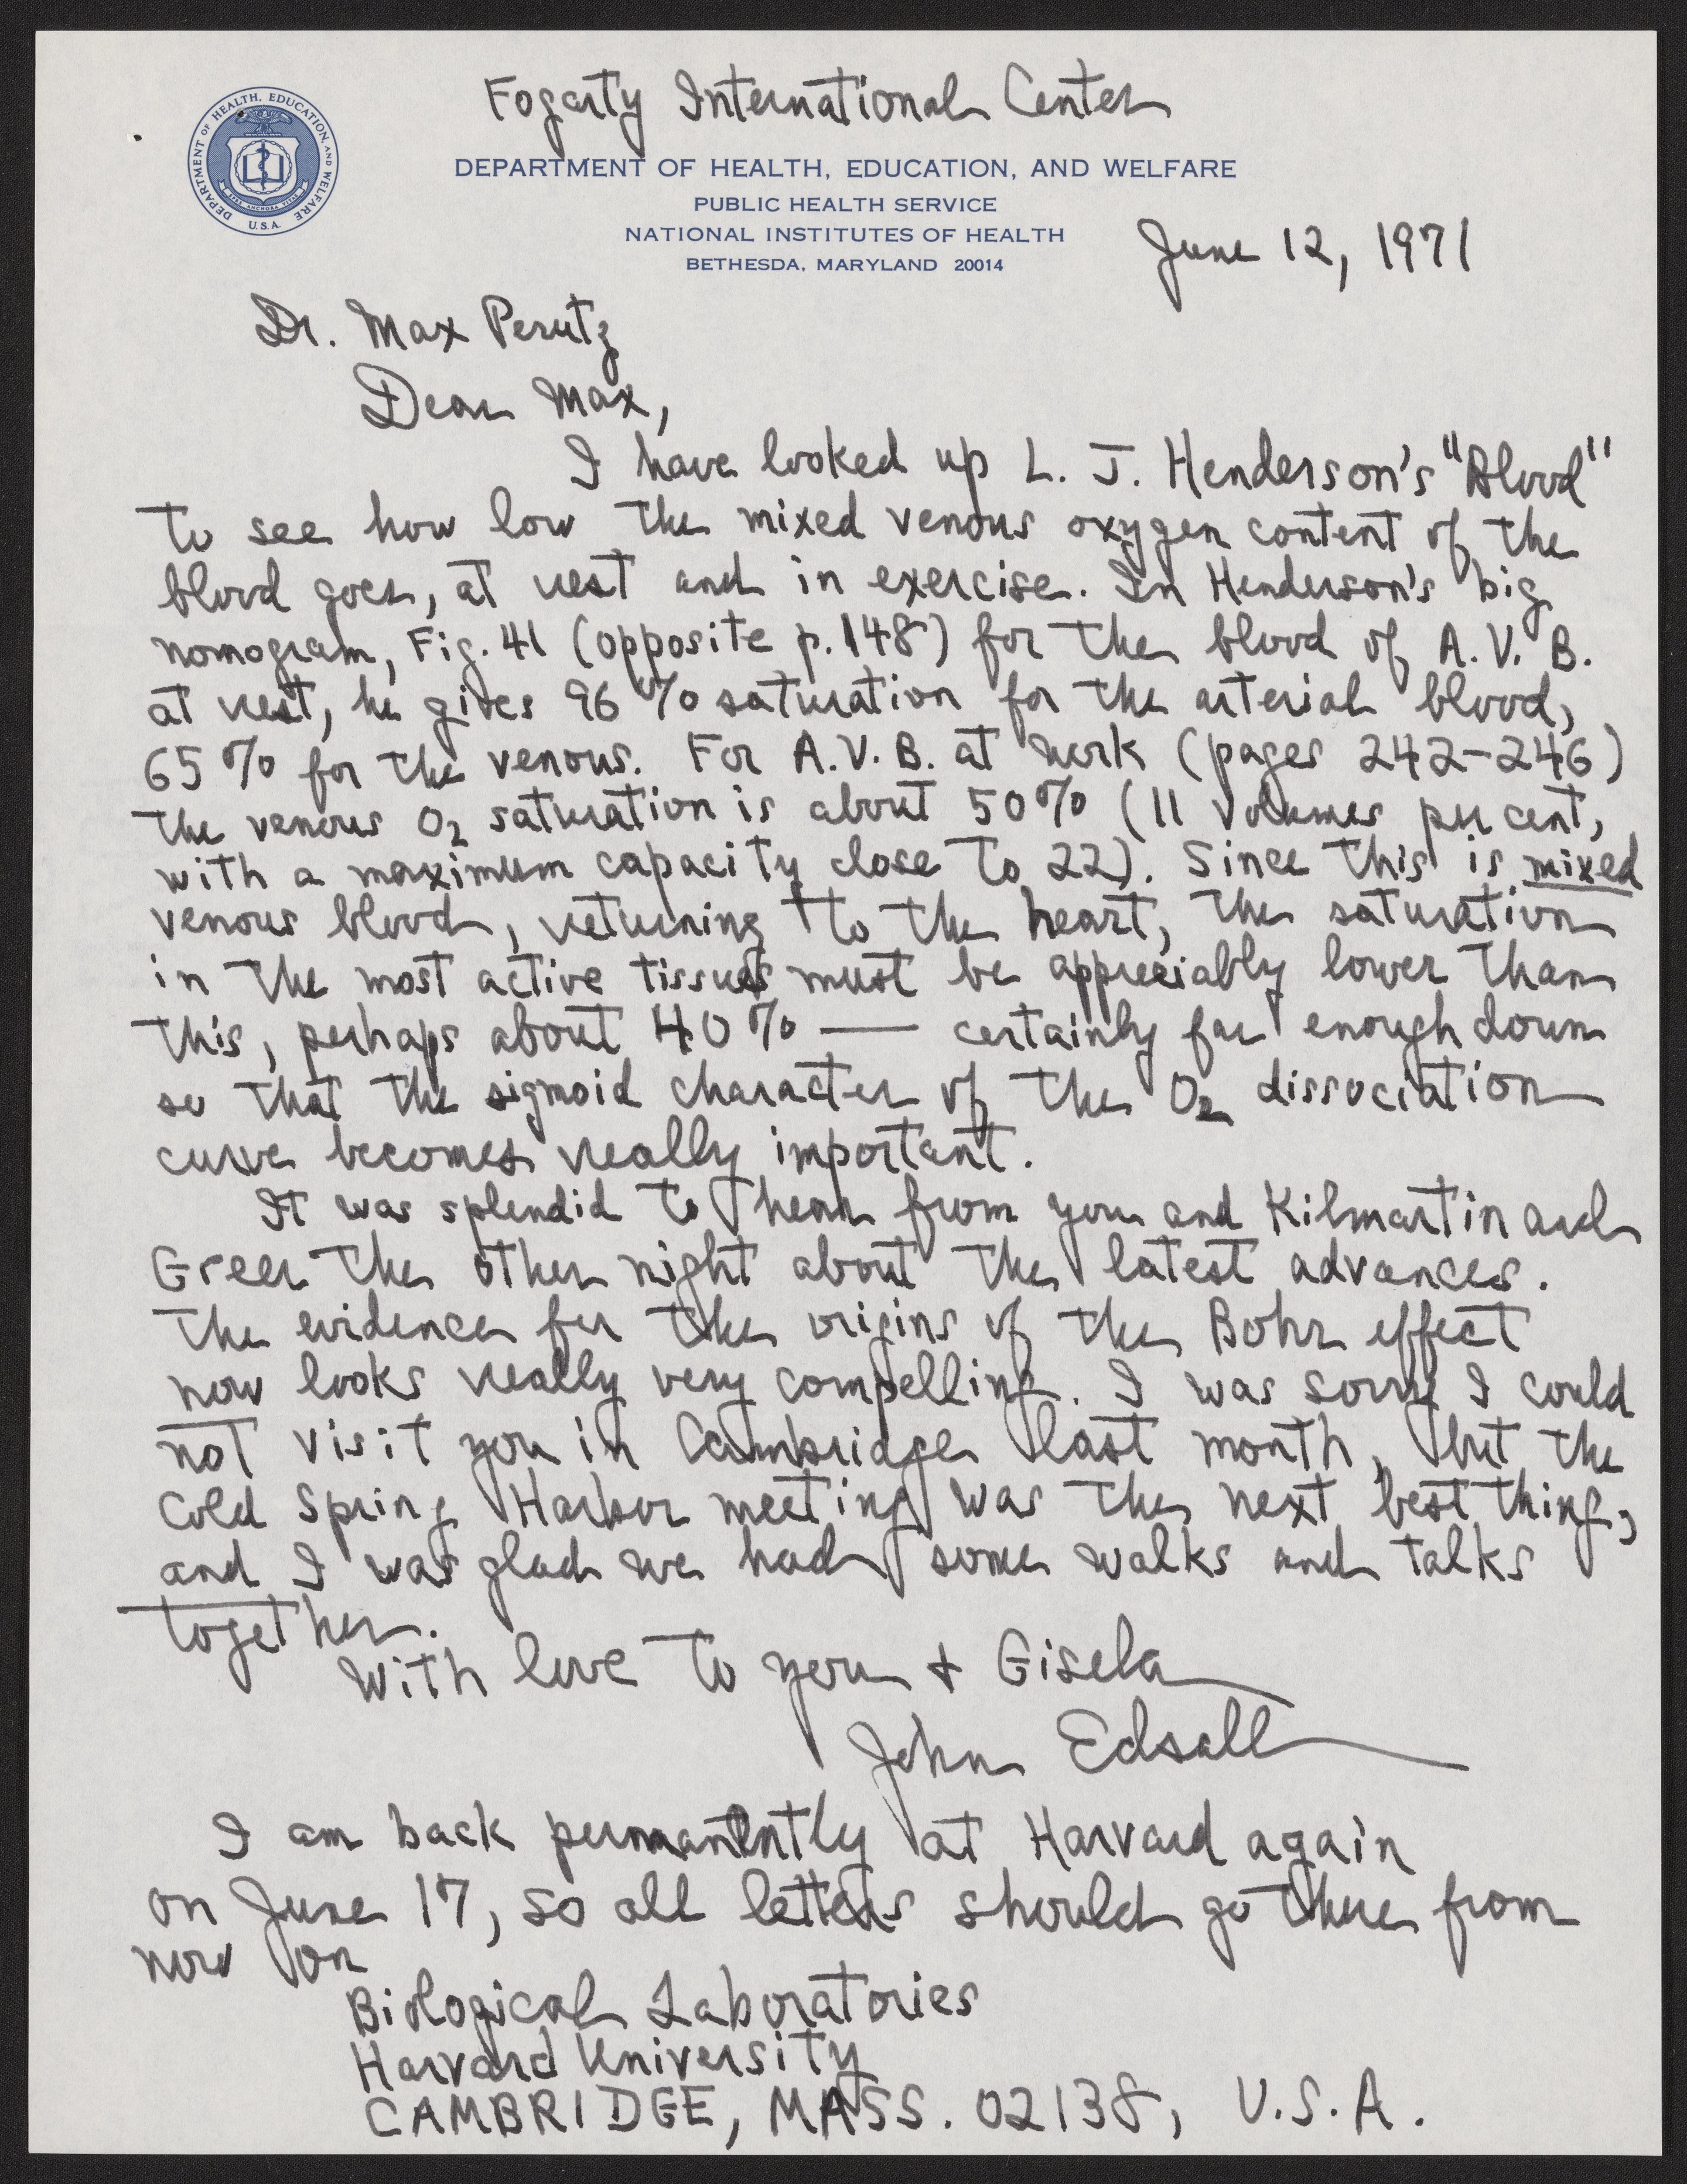 Fogarty International Center
DEPARTMENT OF HEALTH, EDUCATION, AND WELFARE
U.S.A.
DEPARTMENT OF HEALTH, EDUCATION, AND WELFARE
PUBLIC HEALTH SERVICE
NATIONAL INSTITUTES OF HEALTH
BETHESDA, MARYLAND 20014
June 12, 1971
Dr. Max Perutz
Dear Max,
I have looked up L. J. Henderson's "Blood"
to see how low the mixed venous oxygen content of the
blood goes, at rest and in exercise. In Henderson's big
nomogram, Fig. 41 (opposite p. 148) for the blood of A. V. B.
at rest, he gives 96% saturation for the arterial blood,
65% for the venous. For A.V.B. at work (pages 242-246)
the venous O2 saturation is about 50% (11 volumes per cent,
with a maximum capacity close to 22). Since this is mixed
venous blood, returning to the heart, the saturation
in the most active tissues must be appreciably lower than
this, perhaps about 40% — certainly far enough down
so that the sigmoid character of the O2 dissociation
curve becomes really important.
It was splendid to hear from you and Kilmartin and
Greer the other night about the latest advances.
The evidence for the origins of the Bohr effect
now looks really very compelling. I was sorry I could
not visit you in Cambridge last month, but the
Cold Spring Harbor meeting was the next best thing,
and I was glad we had some walks and talks
together.
With love to you + Gisela
John Edsall
I am back permanently at Harvard again
on June 17, so all letters should go there from
now on
Biological Laboratories
Harvard University
CAMBRIDGE, MASS. 02138, U.S.A.